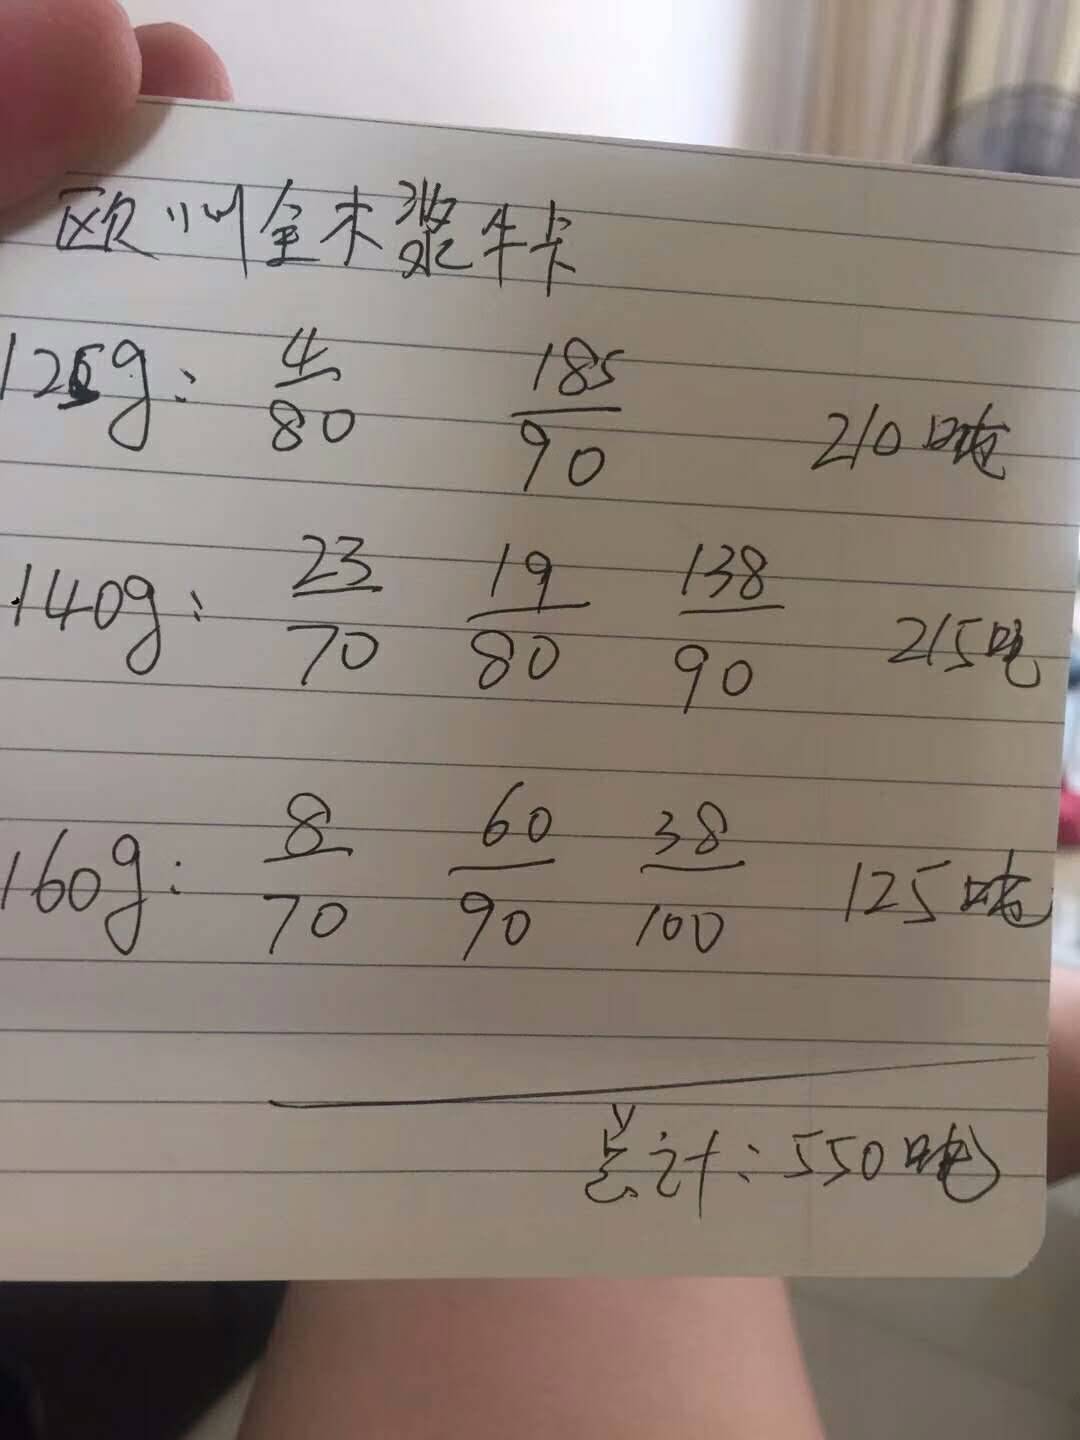 欧州全木浆牛卡
125g: 4/80 185/90 210吨
140g: 23/70 19/80 138/90 215吨
160g: 8/70 60/90 38/100 125吨
总计:550吨